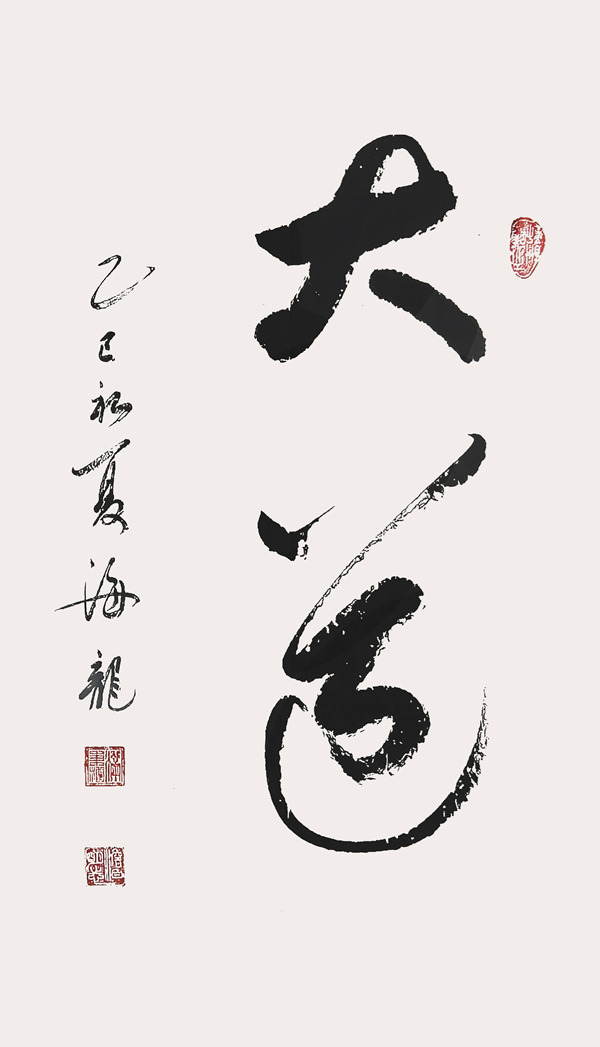 大道
乙巳初夏海龍